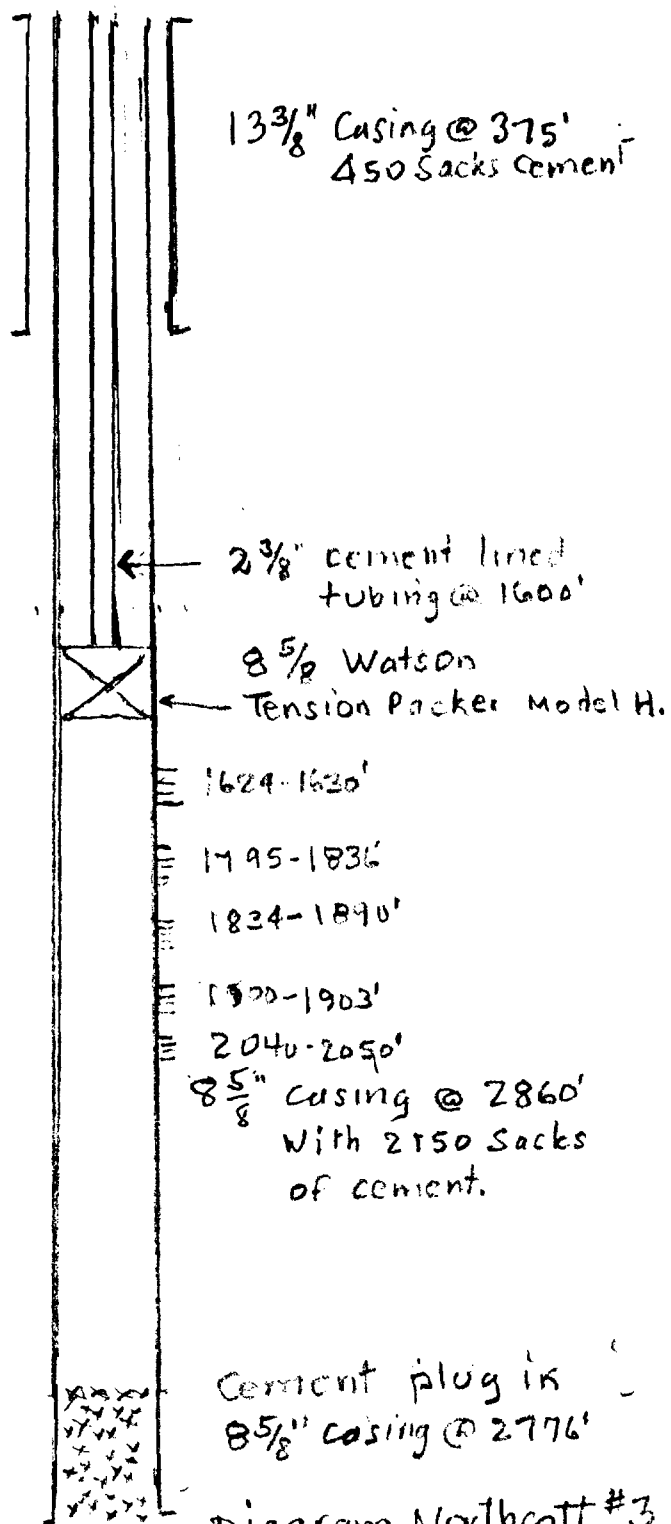 13 3/8" Casing @ 375'
450 Sacks Cement
2 3/8" cement lined
tubing @ 1600'
8 5/8 Watson
Tension Packer Model H.
1624-1630'
1795-1836'
1834-1890'
1900-1903'
2040-2050'
8 5/8" Casing @ 2860'
With 2150 Sacks
of cement.
Cement plug in
8 5/8" casing @ 2776'
Diagram Northcott #3